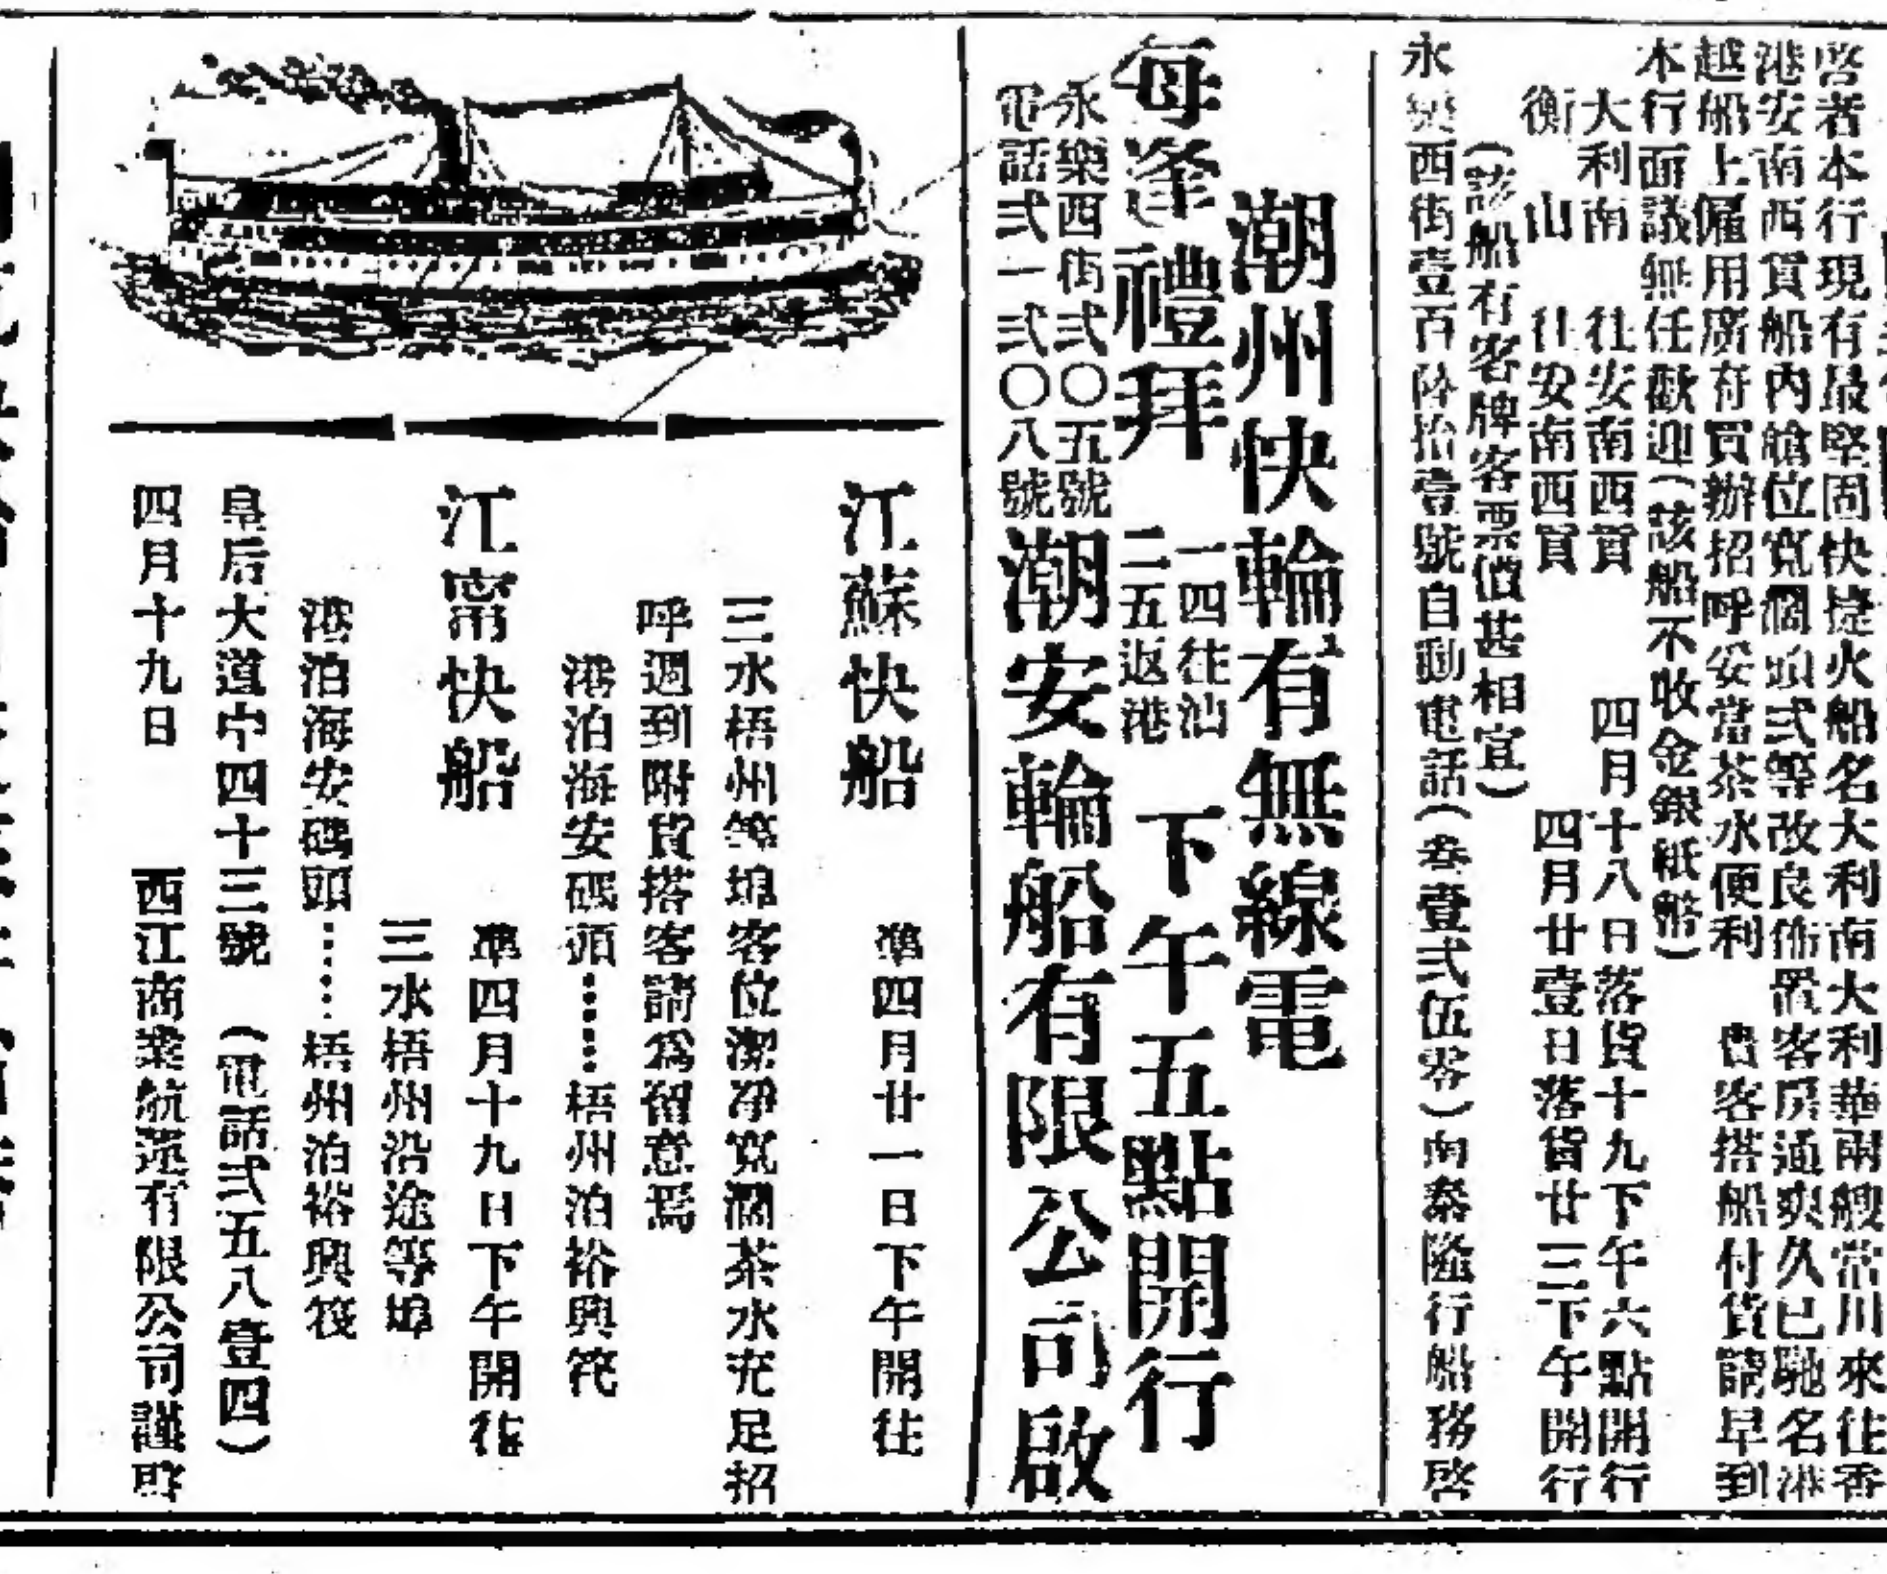 啓者本行現有最堅固快捷火船名大利南大利華兩艘常川來往香
港安南西貢船內艙位寬濶頭弍等改良佈置客房通爽久已馳名港
越船上僱用廣府買辦招呼妥當茶水便利 貴客搭船付貨請早到
本行面議無任歡迎(該船不收金銀紙幣)
大利南 往安南西貢 四月十八日落貨十九下午六點開行
衡山 往安南西貢 四月廿壹日落貨廿三下午開行
(該船有客牌客票價甚相宜)
永樂西街壹百陸拾壹號自動電話(叁壹弍伍零)南泰隆行船務啓
潮州快輪有無線電
每逢禮拜 一四往汕 二五返港 下午五點開行
永樂西街弍〇五號
電話弍一弍〇八號
潮安輪船有限公司啟
江蘇快船 準四月廿一日下午開往
三水梧州等埠客位潔淨寬濶茶水充足招
呼週到附貨搭客請爲留意焉
港泊海安碼頭……梧州泊裕興筏
江甯快船 準四月十九日下午開往
三水梧州沿途等埠
港泊海安碼頭……梧州泊裕興筏
皇后大道中四十三號 (電話弍五八壹四)
四月十九日 西江商業航運有限公司謹啓